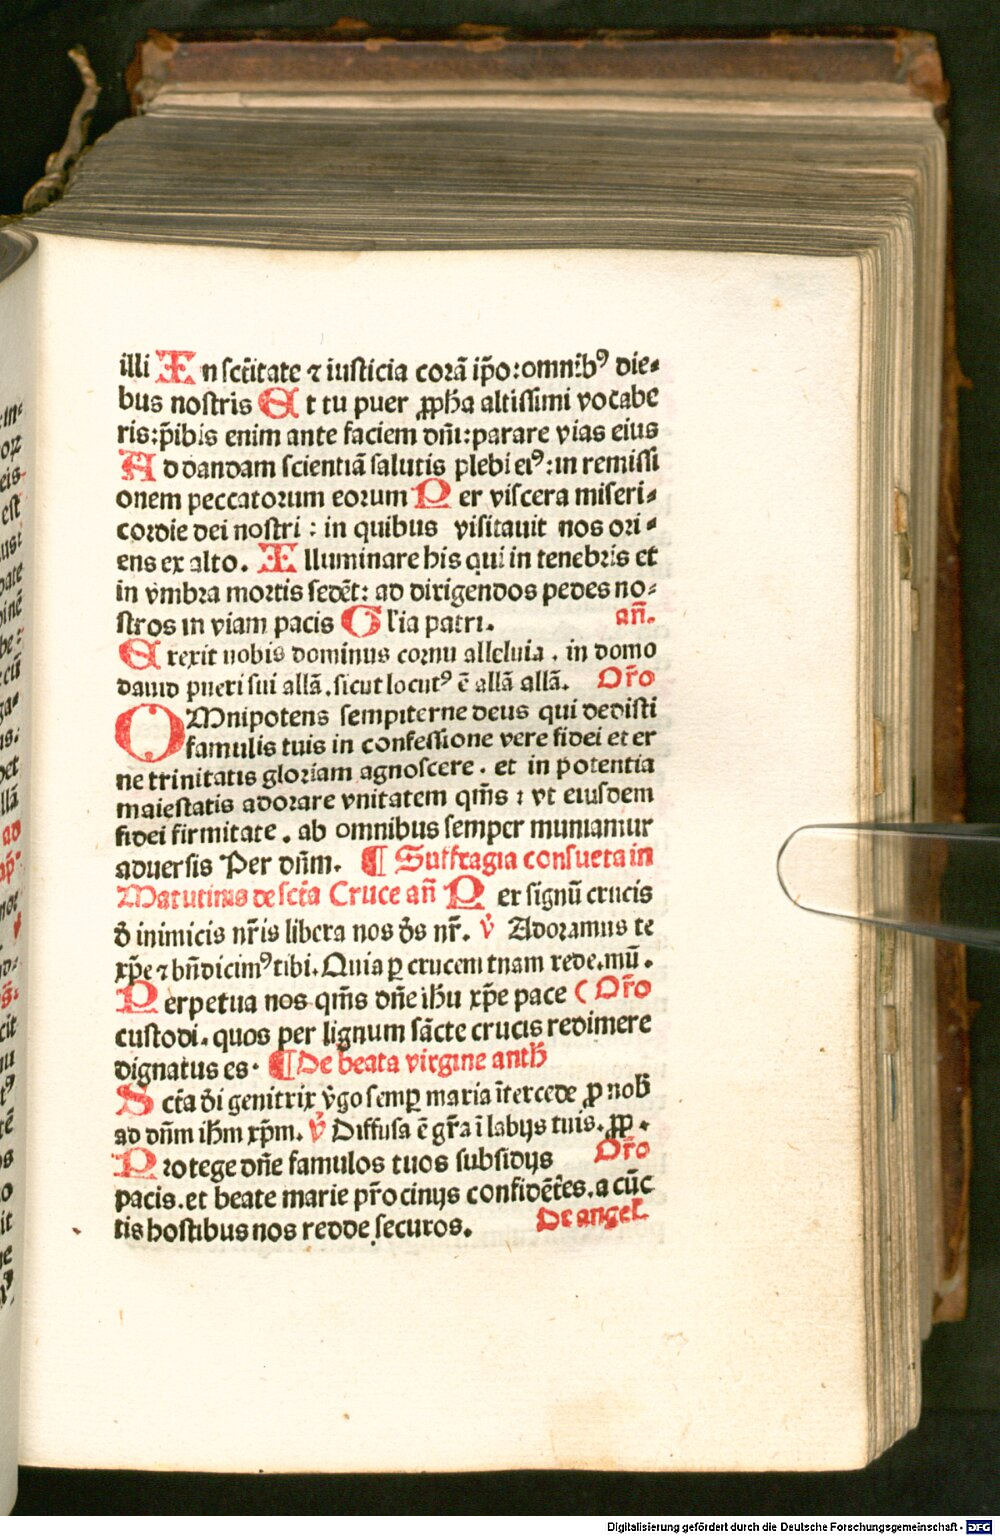 illi In sctitate ⁊ iusticia corā ip̄o: omnibꝰ die⸗
bus nostris Et tu puer ꝓpħa altissimi vocabe
ris: p̄ibis enim ante faciem dn̄i: parare vias eius
Ad dandam scientiā salutis plebi eiꝰ: in remissi
onem peccatorum eorum Per viscera miseri⸗
cordie dei nostri: in quibus visitauit nos ori⸗
ens ex alto. Illuminare his qui in tenebris et
in vmbra mortis sedēt: ad dirigendos pedes no⸗
stros in viam pacis Gl'ia patri. an̄.
Erexit nobis dominus cornu alleluia. in domo
dauid pueri sui allā. sicut locutꝰ ē allā allā. Or̄o
OMnipotens sempiterne deus qui dedisti
famulis tuis in confessione vere fidei et eter
ne trinitatis gloriam agnoscere. et in potentia
maiestatis adorare vnitatem qm̄s: vt eiusdem
fidei firmitate. ab omnibus semper muniamur
aduersis Per dn̄m. ¶ Suffragia consueta in
Matutinis de sctā Cruce an̄ Per signū crucis
đ inimicis nr̄is libera nos đs nr̄. v̊ Adoramus te
xp̄e ⁊ bn̄dicimꝰ tibi. Quia ꝑ crucem tuam rede. mū.
Perpetua nos qm̄s dn̄e ihu xp̄e pace ( Or̄o
custodi. quos per lignum sācte crucis redimere
dignatus es. ¶ De beata virgine antħ
Sctā đi genitrix v̊go semꝑ maria ītercede ꝓ nob̄
ad dn̄m iħm xp̄m. v̊ Diffusa ē gr̄a ī labijs tuis. ꝓp.
Protege dn̄e famulos tuos subsidijs Or̄o
pacis. et beate marie pr̄ocinijs confidētes. a cūc
tis hostibus nos redde securos. De angel.
Digitalisierung gefördert durch die Deutsche Forschungsgemeinschaft - DFG